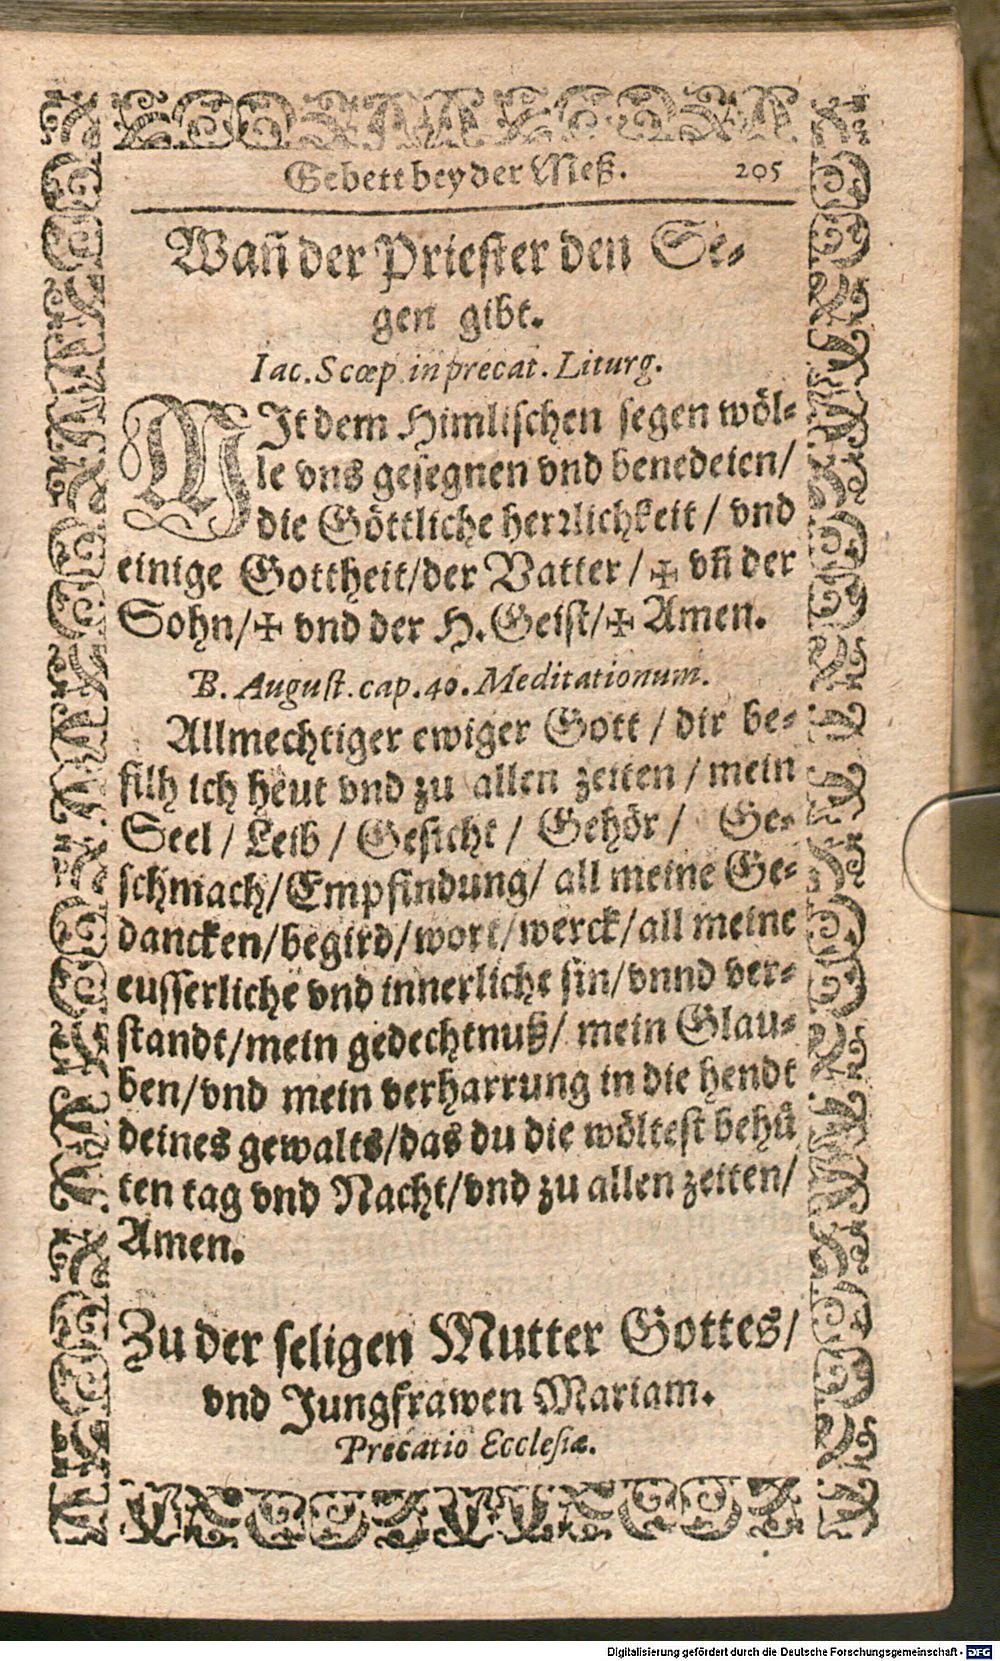 Gebett bey der Meß. 205
Wañ der Priester den Se-
gen gibt.
Iac. Scœp. in precat. Liturg.
MIt dem Himlischen segen wöl-
le vns gesegnen vnd benedeien/
die Göttliche herꝛlichkeit / vnd
einige Gottheit/der Vatter / ✠ vñ der
Sohn/✠ vnd der H. Geist/✠ Amen.
B. August. cap. 40. Meditationum.
Allmechtiger ewiger Gott / dir be-
filh ich heut vnd zu allen zeiten / mein
Seel / Leib / Gesicht / Gehör / Ge-
schmach/Empfindung/ all meine Ge-
dancken/begird/wort/werck/all meine
eusserliche vnd innerliche sin/vnnd ver-
standt/mein gedechtnuß/ mein Glau-
ben/vnd mein verharrung in die hendt
deines gewalts/das du die wöltest behuͤ
ten tag vnd Nacht/vnd zu allen zeiten/
Amen.
Zu der seligen Mutter Gottes/
vnd Jungfrawen Mariam.
Precatio Ecclesiæ.
Digitalisierung gefördert durch die Deutsche Forschungsgemeinschaft - DFG